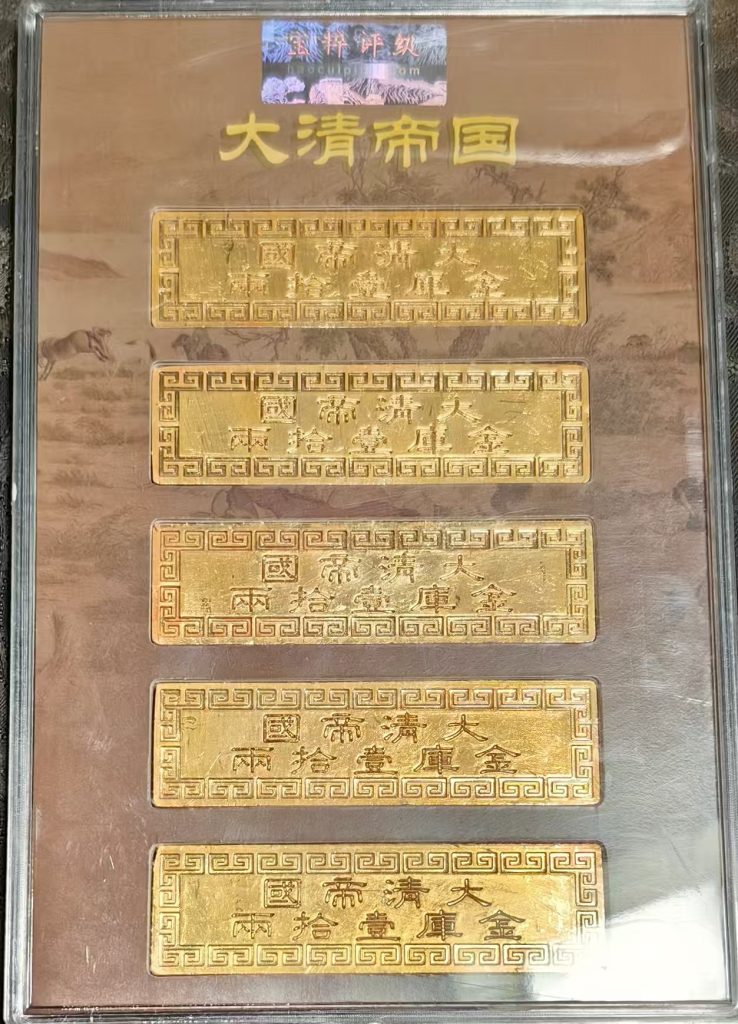 宝粹评级
大清帝国
大清帝國
金庫壹拾兩
大清帝國
金庫壹拾兩
大清帝國
金庫壹拾兩
大清帝國
金庫壹拾兩
大清帝國
金庫壹拾兩